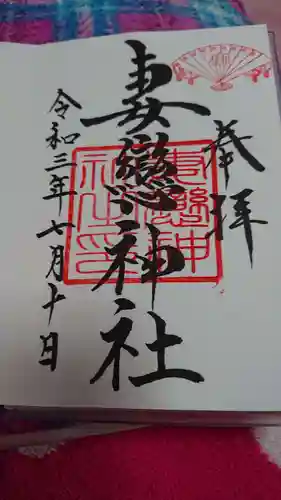 奉拝
妻戀神社
妻戀神
社之印
令和三年七月十日